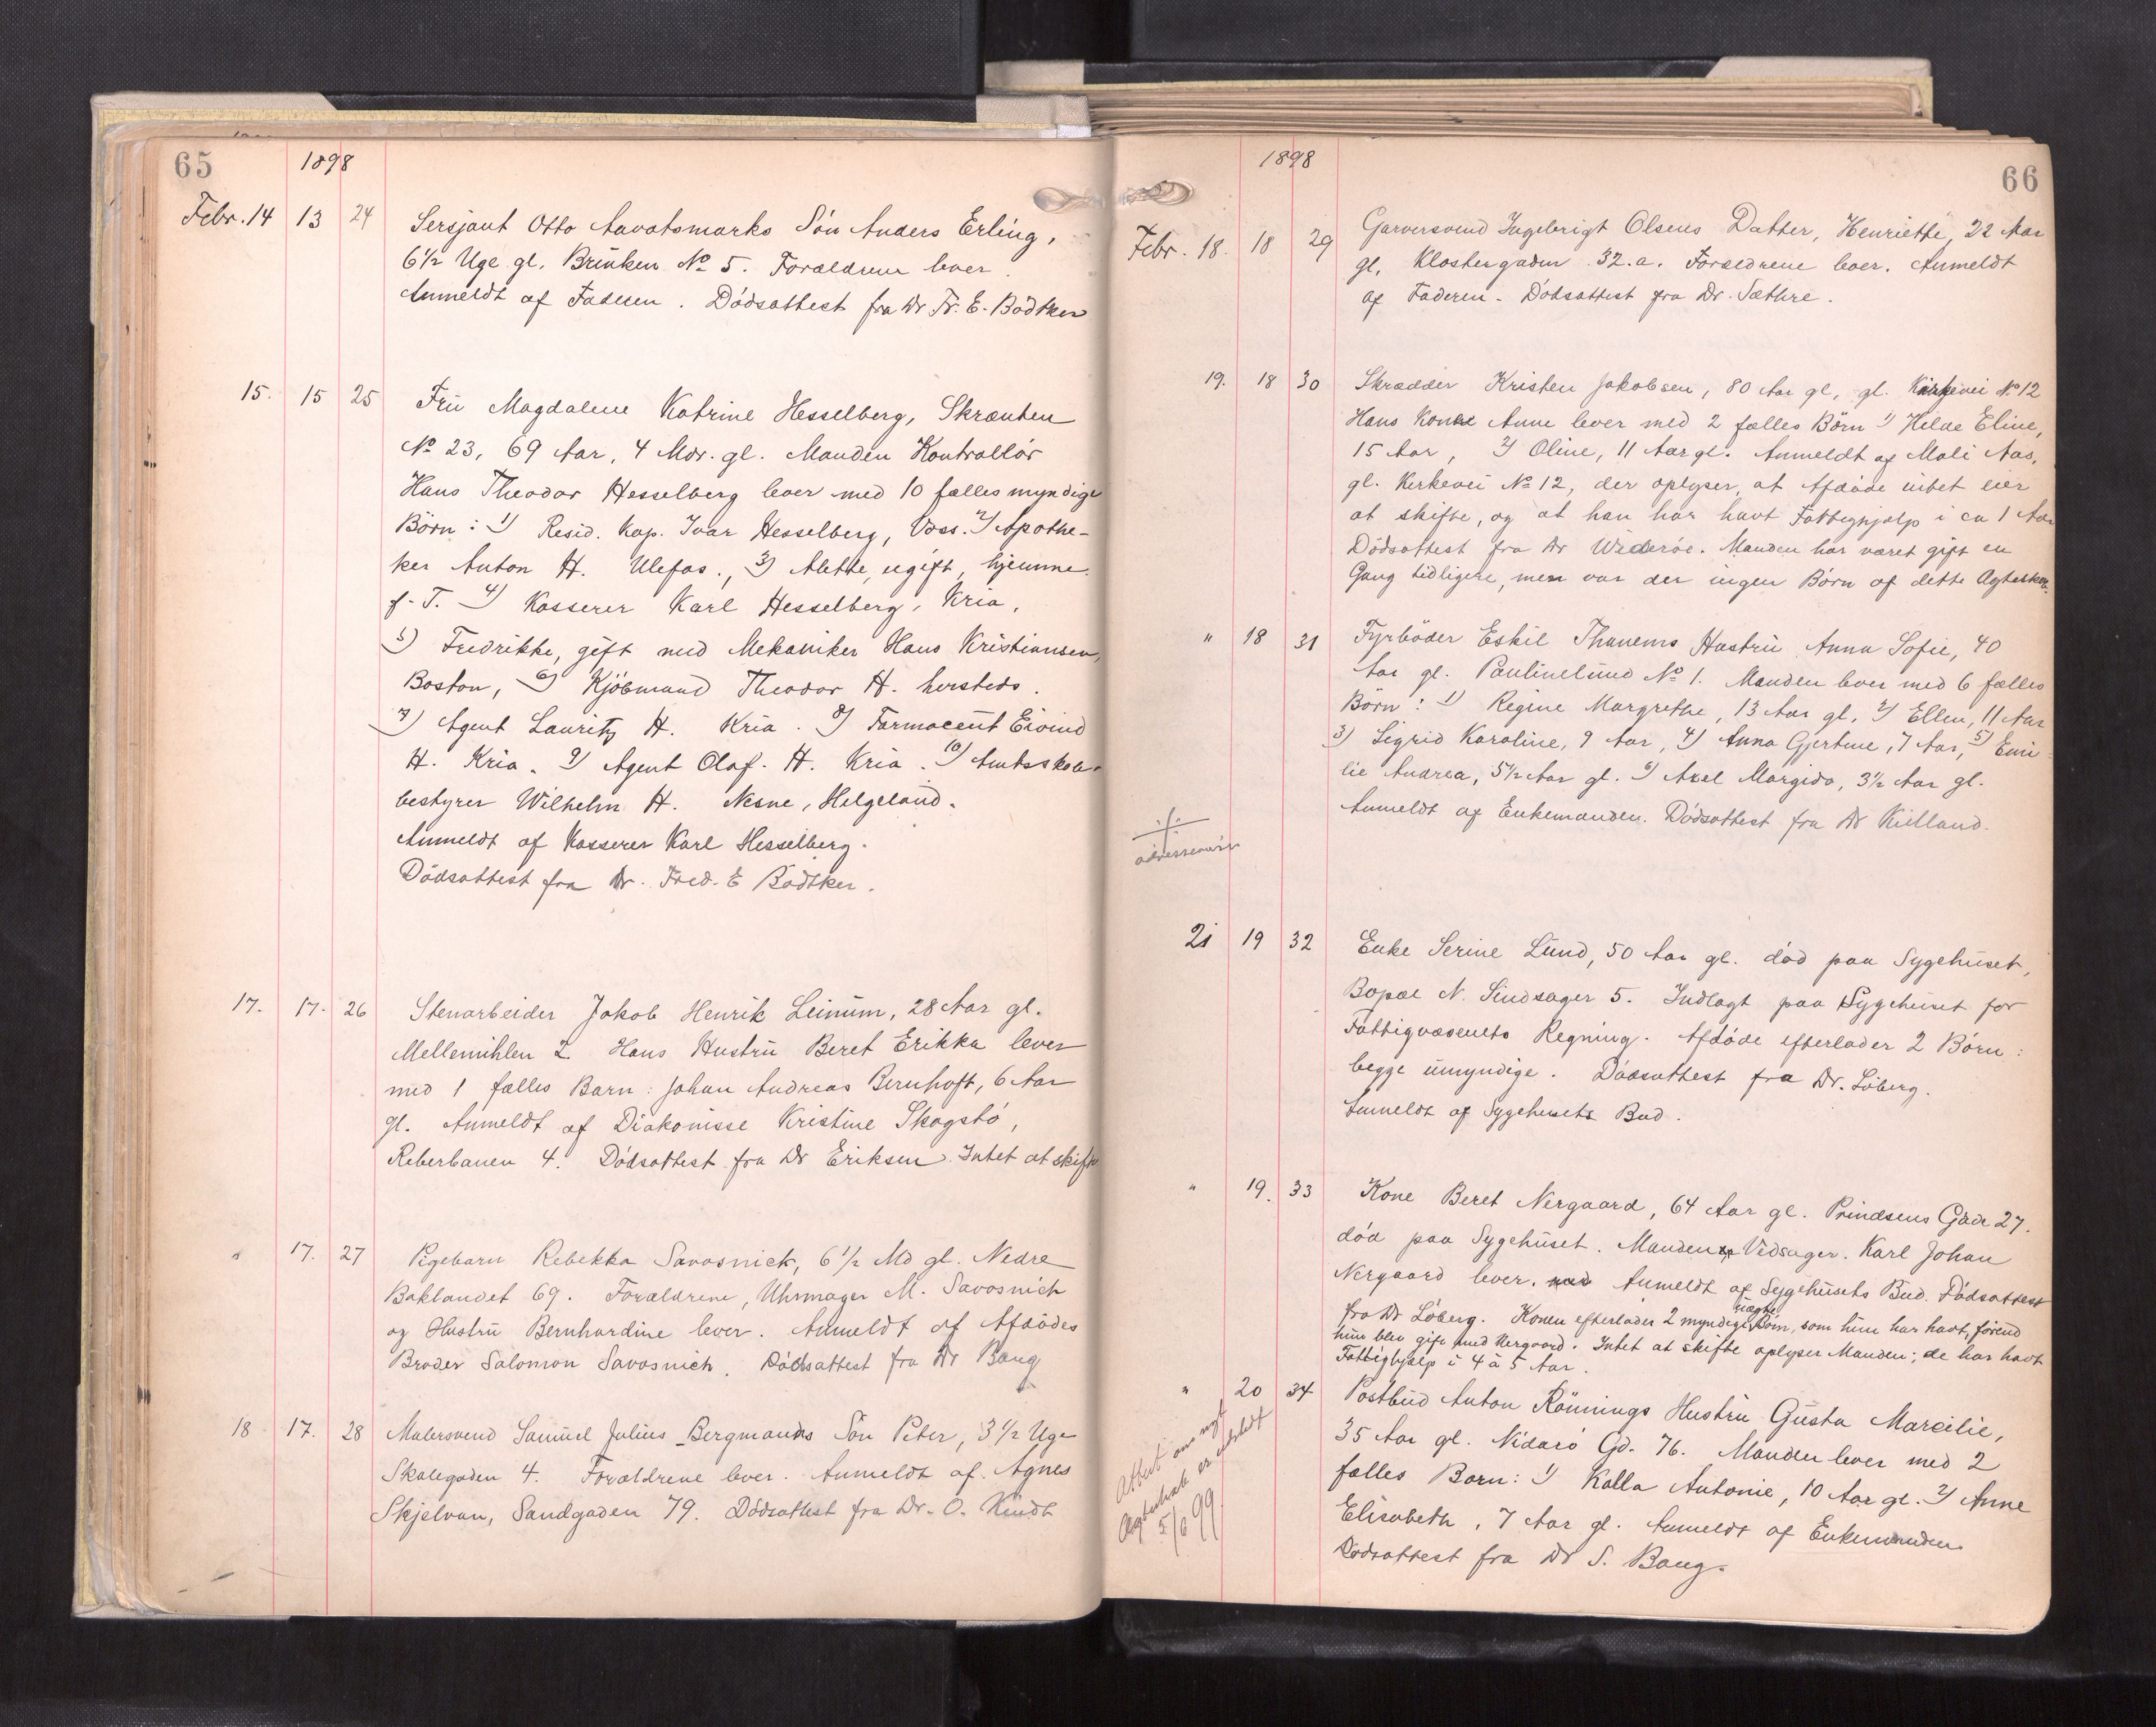 65
1898
Febr. 14 13 24 Sersjant Otto Aavatsmarks Sön Anders Erling,
6 1/2 Uge gl. Brinken No 5. Forældrene lever.
Anmeldt af Faderen. Dödsattest fra Dr Fr. E. Bödtker
15. 15 25 Fru Magdalene Katrine Hesselberg, Skrænten
No 23, 69 Aar, 4 Mdr. gl. Manden Kontrollör
Hans Theodor Hesselberg lever med 10 fælles myndige
Börn: 1) Resid. Kap. Ivar Hesselberg, Voss. 2) Apothe-
ker Anton H. Ulefos., 3) Alette, ugift, hjemme
f. T. 4) Kasserer Karl Hesselberg, Kria,
5) Fredrikke, gift med Mekaniker Hans Kristiansen,
Boston, 6) Kjöbmand Theodor H. hersteds.
7) Agent Lauritz H. Kria. 8) Farmaceut Eivind
H. Kria. 9) Agent Olaf. H. Kria. 10) Amtsskole-
bestyrer Wilhelm H. Nesne, Helgeland.
Anmeldt af Kasserer Karl Hesselberg.
Dödsattest fra Dr. Fred. E Bödtker.
17. 17. 26 Stenarbeider Jakob Henrik Leinum, 28 Aar gl.
Mellemihlen 2. Hans Hustru Beret Erikka lever
med 1 fælles Barn: Johan Andreas Bernhoft, 6 Aar
gl. Anmeldt af Diakonisse Kristine Skogstö,
Reberbanen 4. Dödsattest fra Dr Eriksen. Intet at skifte
" 17. 27 Pigebarn Rebekka Savosnick, 6 1/2 Md gl. Nedre
Baklandet 69. Forældrene, Uhrmager M. Savosnich
og Hustru Bernhardine lever. Anmeldt af Afdödes
Broder Salomon Savosnich. Dödsattest fra Dr Bang
18 17. 28 Malersvend Samuel Julius Bergmanns Sön Peter, 3 1/2 Uge
Skolegaden 4. Forældrene lever. Anmeldt af Agnes
Skjelvan, Sandgaden 79. Dödsattest fra Dr. O. Kindt
66
1898
Febr. 18. 18 29 Garversvend Ingebrigt Olsens Datter, Henriette, 22 Aar
gl. Klostergaden 32.a. Forældrene lever. Anmeldt
af Faderen. Dödsattest fra Dr. Sæthre.
19. 18 30 Skrædder Kristen Jakobsen, 80 Aar gl, gl. Kirkevei No 12
Hans Kone Anne lever med 2 fælles Börn 1) Hilde Eline,
15 Aar, 2) Oline, 11 Aar gl. Anmeldt af Mali Aas,
gl. Kirkevei No 12, der oplyser, at Afdöde intet eier
at skifte, og at han har havt Fattighjælp i ca 1 Aar
Dödsattest fra Dr Wideröe. Manden har været gift en
Gang tidligere, men var der ingen Börn af dette Ægteskab.
" 18 31 Fyrböder Eskil Thanems Hustru Anna Sofie, 40
Aar gl. Paulinelund No 1. Manden lever med 6 fælles
Börn: 1) Regine Margrethe, 13 Aar gl, 2) Ellen, 11 Aar
3) Sigrid Karoline, 9 Aar, 4) Anna Gjertine, 7 Aar, 5) Emi-
lie Andrea, 5 1/2 Aar gl. 6) Axel Margido, 3 1/2 Aar gl.
Anmeldt af Enkemanden. Dödsattest fra Dr Kielland.
21 19 32 Enke Serine Lund, 50 Aar gl. död paa Sygehuset,
Bopæl N. Sindsager 5. Indlagt paa Sygehuset for
Fattigvæsenets Regning. Afdöde efterlader 2 Börn:
begge umyndige. Dödsattest fra Dr. Löberg.
Anmeldt af Sygehusets Bud.
" 19. 33 Kone Beret Nergaard, 64 Aar gl. Prindsens Gade 27.
död paa Sygehuset. Manden Vedsager. Karl Johan
Nergaard lever. Anmeldt af Sygehusets Bud. Dödsattest
fra Dr Löberg. Konen efterlader 2 myndige uægte Börn, som hun har havt, förend
hun blev gift med Nergaard. Intet at skifte oplyser Manden; de har havt
Fattighjælp i 4 à 5 Aar.
" 20 34 Postbud Anton Rönnings Hustru Gusta Marcilie,
35 Aar gl. Nidarö Gd. 76. Manden lever med 2
fælles Barn: 1) Kalla Antonie, 10 Aar gl. 2) Anne
Elisabeth, 7 Aar gl. Anmeldt af Enkemanden
Dödsattest fra Dr S. Bang.
Attest om nyt
Ægteskab er udstedt
5/6 99